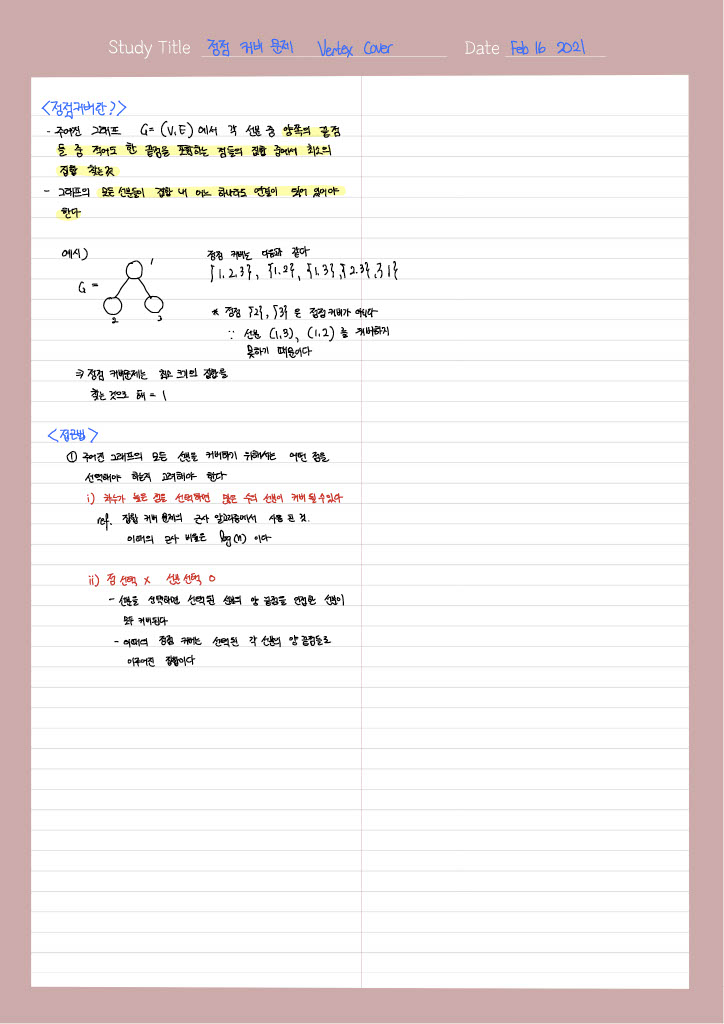 Study Title 정점 커버 문제 Vertex Cover Date Feb 16 2021
<정점커버란?>
- 주어진 그래프 G= (V, E) 에서 각 선분 중 양쪽의 끝점
들 중 적어도 한 끝점을 포함하는 점들의 집합 중에서 최소의
집합 찾는것
- 그래프의 모든 선분들이 집합 내 어느 하나라도 연결이 되어 있어야
한다
예시)
G =
1
2
3
정점 커버는 다음과 같다
{1, 2, 3}, {1, 2}, {1, 3}, {2, 3}, {1}
* 정점 {2}, {3} 은 정점 커버가 아니다
∵ 선분 (1, 3), (1, 2) 를 커버하지
못하기 때문이다
⇒ 정점 커버문제는 최소 크기의 집합을
찾는 것으로 해 = 1
<접근법>
① 주어진 그래프의 모든 선분을 커버하기 위해서는 어떤 점을
선택해야 하는지 고려해야 한다
i) 차수가 높은 점을 선택하면 많은 수의 선분이 커버 될 수 있다
ref. 집합 커버 문제의 근사 알고리즘에서 사용 된 것.
이때의 근사 비율은 log(n) 이다
ii) 점 선택 x 선분 선택 o
- 선분을 선택하면 선택된 선분의 양 끝점을 인접한 선분이
모두 커버된다
- 이때의 정점 커버는 선택된 각 선분의 양 끝점들로
이루어진 집합이다